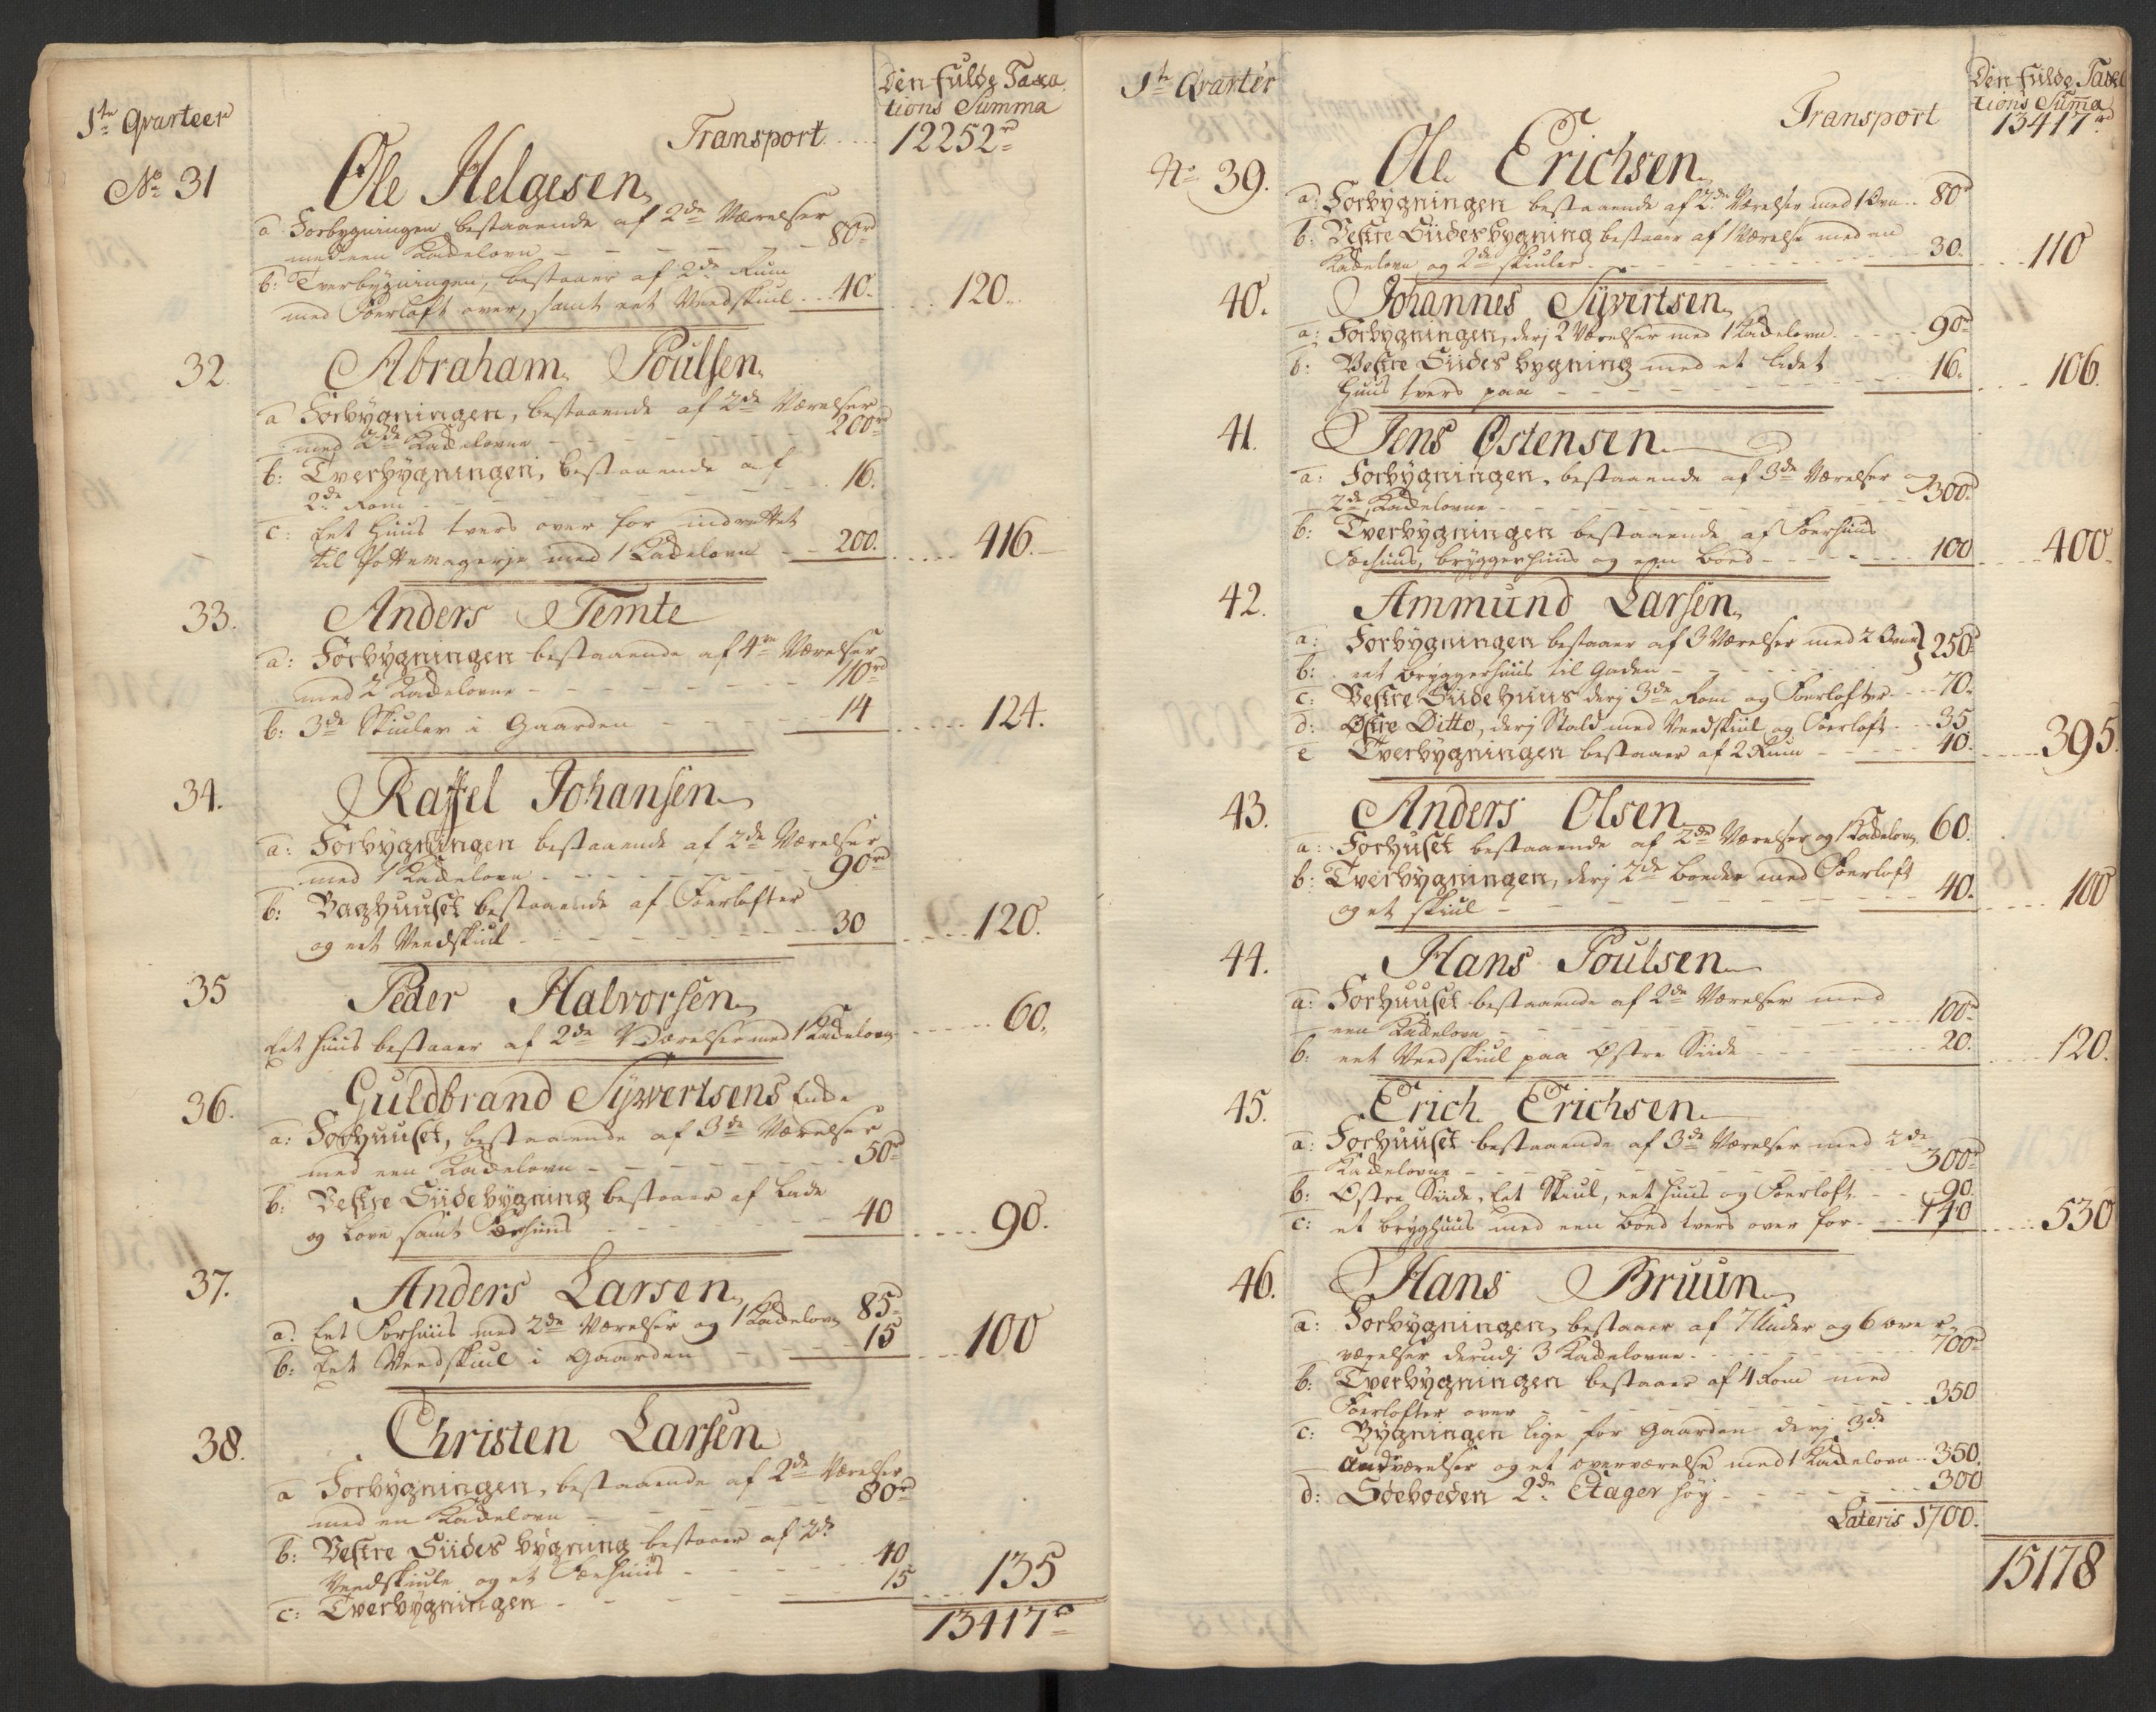 1te Qvarteer
Den fulde Taxa
tions Summa
Transport .... 12252rd
No 31 Ole Helgesen
a Forbygningen bestaaende af 2de Værelser
med een Kackelovn - - - 80rd
b: Tverbygningen, bestaaer af 2de Rum
med Foerloft over, samt eet Veedskiul .. 40. ... 120.
32. Abraham Poulsen
a Forbygningen, bestaaende af 2de Værelser
med 2de Kackelovne - - - 200rd
b: Tverbygningen, bestaaende af
2de Rom - - - 16.
c: Eet Huus tvers over for indrettet
til Pottemagerje med 1 Kackelovn - 200. .... 416.
33. Anders Temte
a: Forbygningen bestaaende af 4re Værelser
med 2 Kackelovne - - - 110rd
b: 3de Skiuler i Gaarden - - - 14 .... 124.
34. Raffel Johansen
a: Forbygningen bestaaende af 2de Værelser
med 1 Kackelovn - - - 90rd
b: Baghuuset bestaaende af Foerlofter
og eet Veedskiul - - - 30 .... 120.
35 Peder Halvorsen
Eet Huus bestaaer af 2de Værelser med 1 Kackelovn ..... 60.
36. Guldbrand Syvertsens Enke
a: Forhuuset, bestaaende af 3de Værelser
med een Kackelovn - - - 50rd
b: Vestre Siidebygning bestaaer af Lade
og Love samt Fæehuus - - - 40 .... 90.
37. Anders Larsen
a. Eet Forhuus med 2de Værelser og 1 Kackelovn 85.
b: Eet Veedskiul i Gaarden - - - 15 ... 100
38. Christen Larsen
a Forbygningen, bestaaende af 2de Værelser
med en Kackelovn - - - 80rd
b: Vestre Siides bygning bestaaer af 2de
Veedskiule og et Fæehuus - - - 40
c: Tverbygningen - - - 15 .... 135
13417rd
1te Qvarter
Den fulde Taxa
tions Summa
Transport 13417rd
No 39. Ole Erichsen
a: Forbygningen bestaaende af 2de Værelser med 1 Ovn .. 80rd
b: Vestre Siides bygning bestaaer af 1 Værelse med en
Kackelovn og 2de skiuler - - - 30. ... 110
40. Johannes Syvertsen
a: Forbygningen, derj 2 Værelser med 1 Kackelovn - - 90rd
b: Vestre Siides bygning med et lidet
Huus tvers paa - - - 16. ... 106.
41. Jens Østensen
a: Forbygningen, bestaaende af 3de Værelser og
2de Kackelovne - - - 300rd
b: Tverbygningen bestaaende af Foerhuus
Fæehuus, bryggerhuus og een boed - - - 100 .... 400.
42. Ammund Larsen
a: Forbygningen bestaaer af 3 Værelser med 2 Ovne } 250rd
b: eet Bryggerhuus til Gaden - - -
c: Vestre Siidehuus derj 3de Rom og Foerlofter - - 70.
d: Østre Ditto, derj Stald med Veedskiul og Foerloft .. 35
e Tverbygningen bestaaer af 2 Rum - - - 40. .... 395.
43. Anders Olsen
a: Forhuset bestaaende af 2de Værelser og 1 Kackelovn 60.
b: Tverbygningen, derj 2de boeder med Foerloft
og et skiul - - - 40. .... 100
44. Hans Poulsen
a: Forhuuset bestaaende af 2de Værelser med
een Kackelovn - - - 100rd
b: eet Veedskiul paa Østre Siide - - - 20. .... 120.
45. Erich Erichsen
a: Forhuuset bestaaende af 3de Værelser med 2de
Kackelovne - - - 300rd
b: Østre Siide, Eet Skiul, eet Huus og Foerloft - - 90.
c: et bryghuus med een boed tvers over for - - 140 .... 530
46. Hans Bruun
a: Forbygningen, bestaaer af 7 Under og 6 over
værelser derudj 3 Kackelovne - - - 700rd
b: Tverbygningen bestaaer af 4 Rom med
Foerlofter over - - - 350
c: Bygningen lige for Gaarden derj 3de
Underværelser og et overværelse med 1 Kackelovn .. 350.
d: Søeboeden 2de Etager høy - - - 300
Lateris 1700.
15178